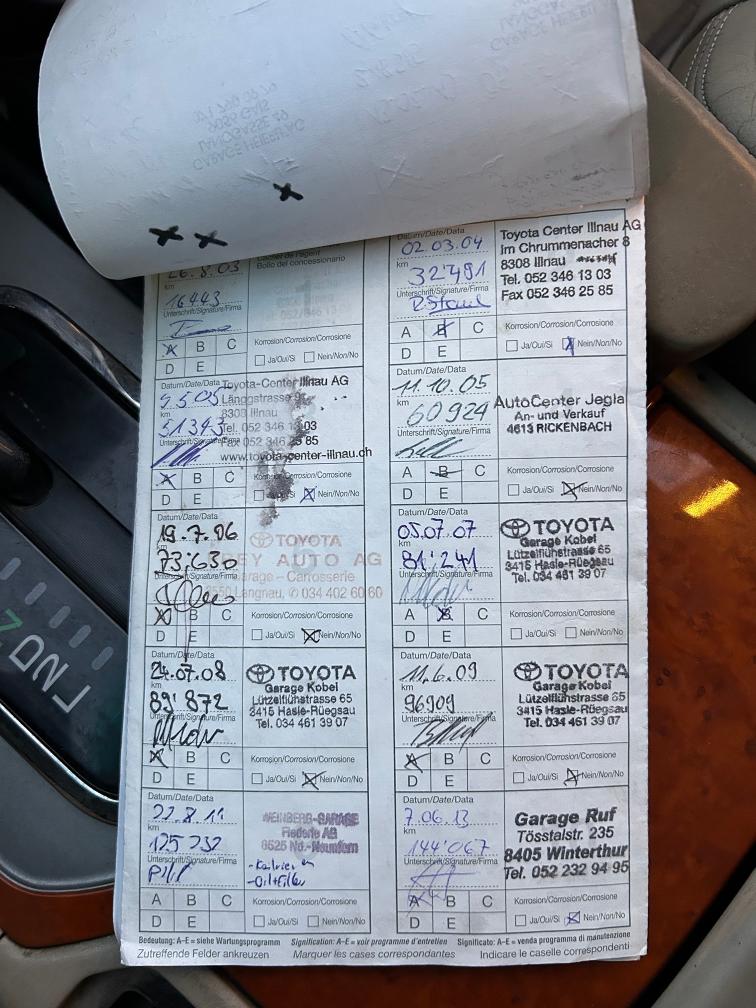 26.8.03
km
16443
Unterschrift/Signature/Firma
Bollo del concessionario
A B C
D E
Korrosion/Corrosion/Corrosione
Ja/Oui/Si Nein/Non/No
Datum/Date/Data
02.03.04
km
32'481
Unterschrift/Signature/Firma
A B C
D E
Toyota Center Illnau AG
Im Chrummenacher 8
8308 Illnau
Tel. 052 346 13 03
Fax 052 346 25 85
Korrosion/Corrosion/Corrosione
Ja/Oui/Si Nein/Non/No
Datum/Date/Data
5.5.05
km
51343
Unterschrift/Signature/Firma
A B C
D E
Toyota-Center Illnau AG
Länggstrasse
8308 Illnau
Tel. 052 346 13 03
Fax 052 346 25 85
www.toyota-center-illnau.ch
Korrosion/Corrosion/Corrosione
Ja/Oui/Si Nein/Non/No
Datum/Date/Data
11.10.05
km
60924
Unterschrift/Signature/Firma
A B C
D E
AutoCenter Jegla
An- und Verkauf
4613 RICKENBACH
Korrosion/Corrosion/Corrosione
Ja/Oui/Si Nein/Non/No
Datum/Date/Data
19.7.06
km
73'630
Unterschrift/Signature/Firma
A B C
D E
TOYOTA
AUTO AG
Garage – Carrosserie
3550 Langnau, ✆ 034 402 60 60
Korrosion/Corrosion/Corrosione
Ja/Oui/Si Nein/Non/No
Datum/Date/Data
05.07.07
km
81'241
Unterschrift/Signature/Firma
A B C
D E
TOYOTA
Garage Kobel
Lützelflühstrasse 65
3415 Hasle-Rüegsau
Tel. 034 461 39 07
Korrosion/Corrosion/Corrosione
Ja/Oui/Si Nein/Non/No
Datum/Date/Data
24.07.08
km
89'872
Unterschrift/Signature/Firma
A B C
D E
TOYOTA
Garage Kobel
Lützelflühstrasse 65
3415 Hasle-Rüegsau
Tel. 034 461 39 07
Korrosion/Corrosion/Corrosione
Ja/Oui/Si Nein/Non/No
Datum/Date/Data
11.6.09
km
96909
Unterschrift/Signature/Firma
A B C
D E
TOYOTA
Garage Kobel
Lützelflühstrasse 65
3415 Hasle-Rüegsau
Tel. 034 461 39 07
Korrosion/Corrosion/Corrosione
Ja/Oui/Si Nein/Non/No
Datum/Date/Data
22.8.11
km
125 232
Unterschrift/Signature/Firma
A B C
D E
WEINBERG-GARAGE
Fiederle AG
- Oil+Filter
Korrosion/Corrosion/Corrosione
Ja/Oui/Si Nein/Non/No
Datum/Date/Data
7.06.13
km
144'067
Unterschrift/Signature/Firma
A B C
D E
Garage Ruf
Tösstalstr. 235
8405 Winterthur
Tel. 052 232 94 95
Korrosion/Corrosion/Corrosione
Ja/Oui/Si Nein/Non/No
Bedeutung: A–E = siehe Wartungsprogramm Signification: A–E = voir programme d'entretien Significato: A–E = venda programma di manutenzione
Zutreffende Felder ankreuzen Marquer les cases correspondantes Indicare le caselle correspondenti
N
D
L